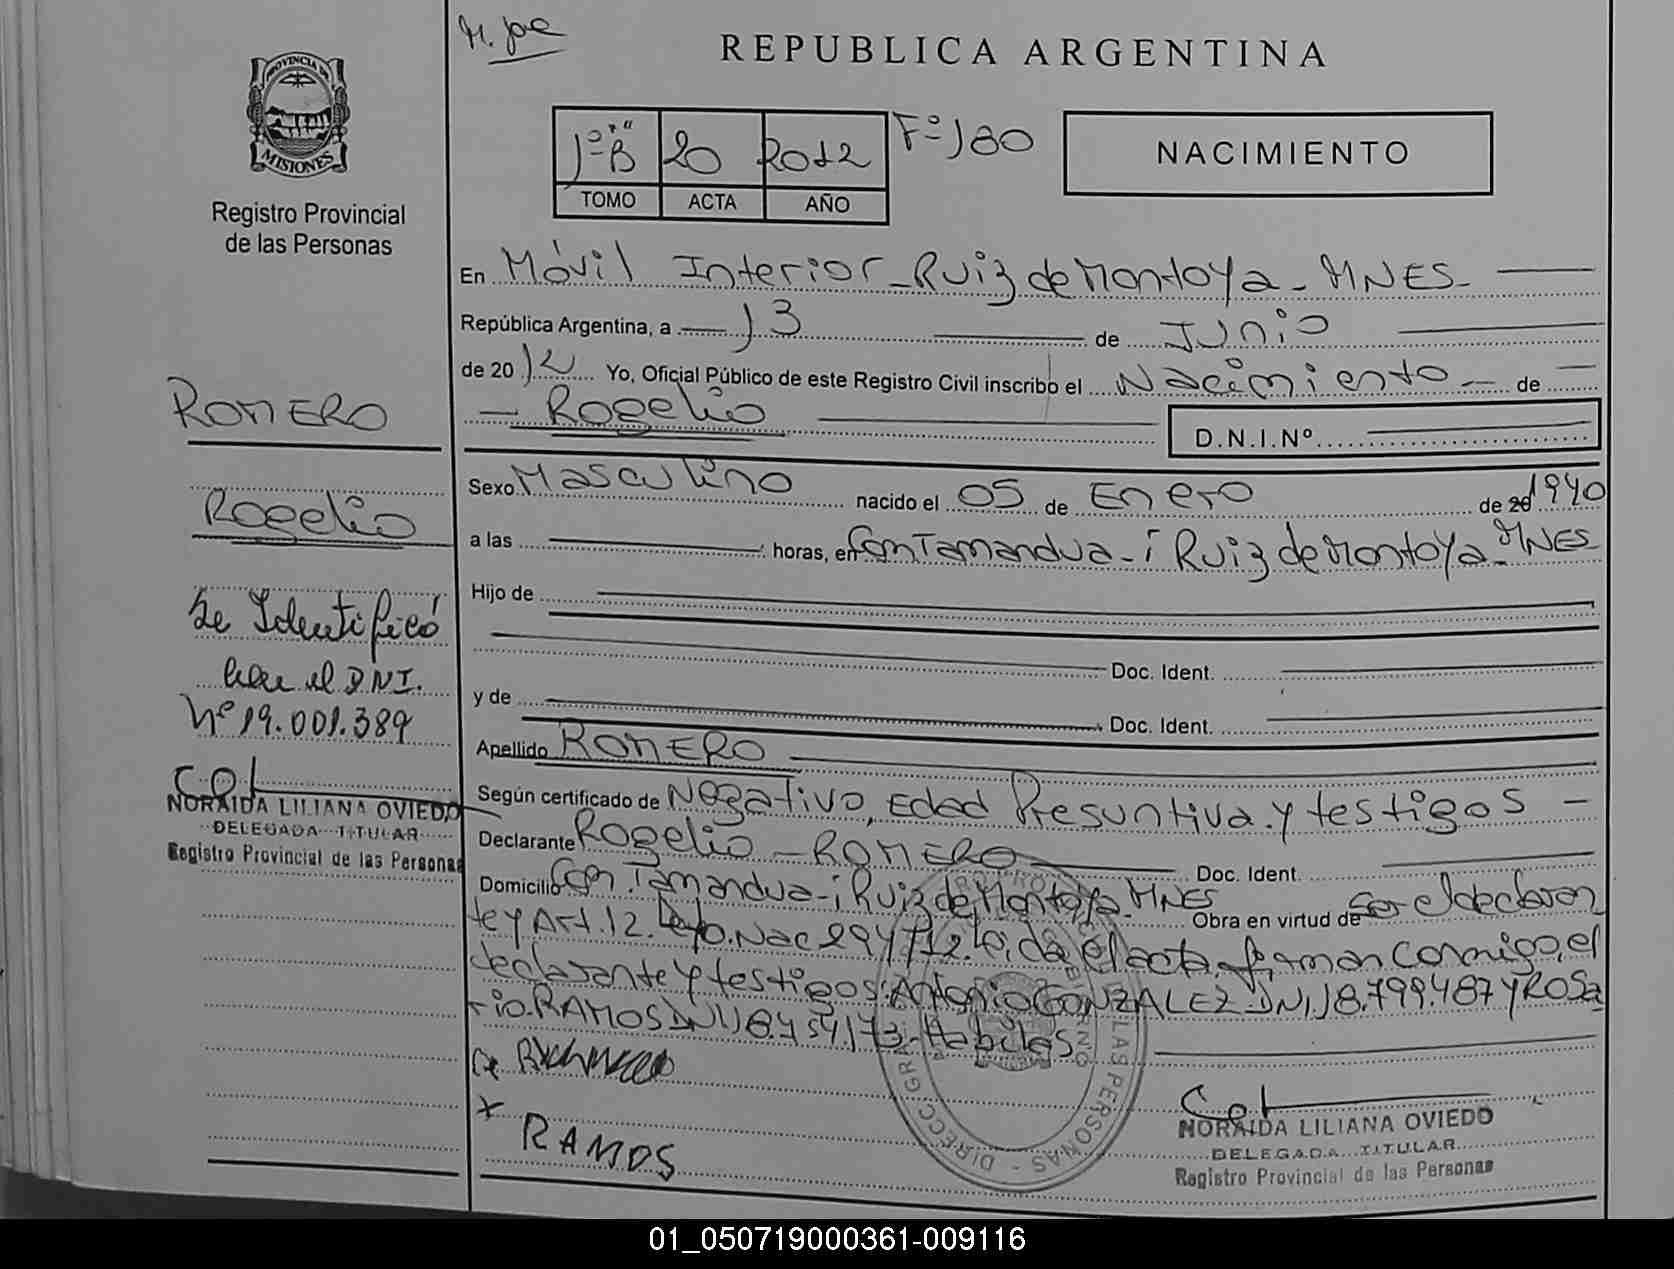 M. José
REPUBLICA ARGENTINA
PROVINCIA DE
MISIONES
Registro Provincial
de las Personas
1º "B" 20 2012 Fº 180
TOMO ACTA AÑO
NACIMIENTO
En Móvil Interior - Ruiz de Montoya - MNES -
República Argentina, a 13 de Junio
de 2012 Yo, Oficial Público de este Registro Civil inscribo el Nacimiento - de
- Rogelio
D.N.I.Nº
ROMERO
Rogelio
Se Identificó
con el DNI.
Nº 19.001.389
NORAIDA LILIANA OVIEDO
DELEGADA TITULAR
Registro Provincial de las Personas
Sexo Masculino nacido el 05 de Enero de 20 1940
a las horas, en Com Tamandua-í Ruiz de Montoya - MNES
Hijo de
Doc. Ident.
y de
Doc. Ident.
Apellido ROMERO
Según certificado de Negativo, Edad Presuntiva y testigos -
Declarante Rogelio - ROMERO Doc. Ident.
Domicilio Com. Tamandua-í Ruiz de Montoya - MNES Obra en virtud de Ser el declaran
te y Art. 12. Nac leida el acta, firman conmigo, el
declarante y testigos: Antonio GONZALEZ DNI 18.799.487 y ROSa
rio. RAMOS DNI 18. Habiles
RAMOS
DIRECC. GRAL LAS PERSONAS
NORAIDA LILIANA OVIEDO
DELEGADA TITULAR
Registro Provincial de las Personas
01_050719000361-009116